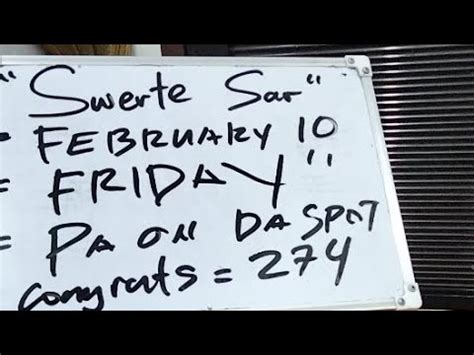 "Swerte Sar"
= FEBRUARY 10
= FRIDAY"
= PA ON DA SPOT
congrats = 274